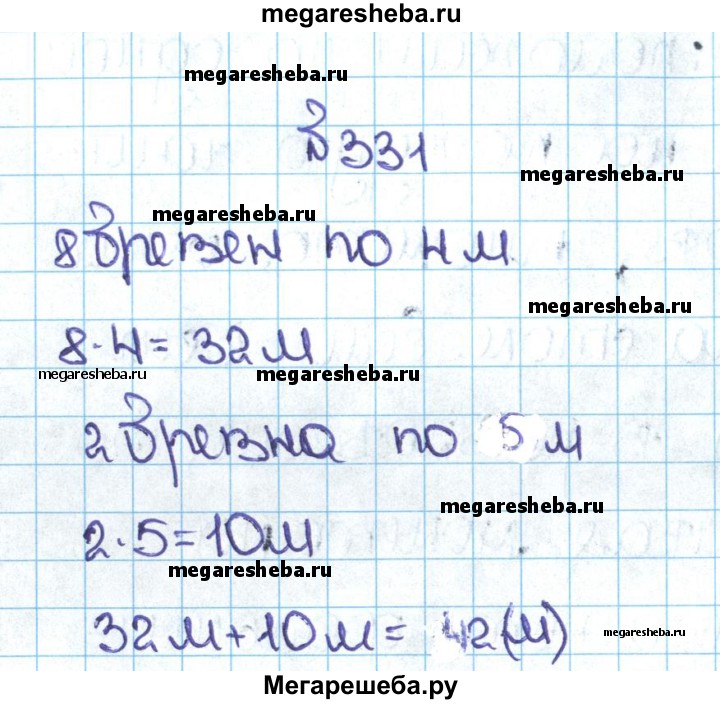 megaresheba.ru
megaresheba.ru
№331
megaresheba.ru
megaresheba.ru
8 брёвен по 4 м
megaresheba.ru
8·4= 32 м
megaresheba.ru
megaresheba.ru
2 бревна по 5 м
megaresheba.ru
2·5=10м
megaresheba.ru
32 м+10 м= 42(м)
megaresheba.ru
Мегарешеба.ру